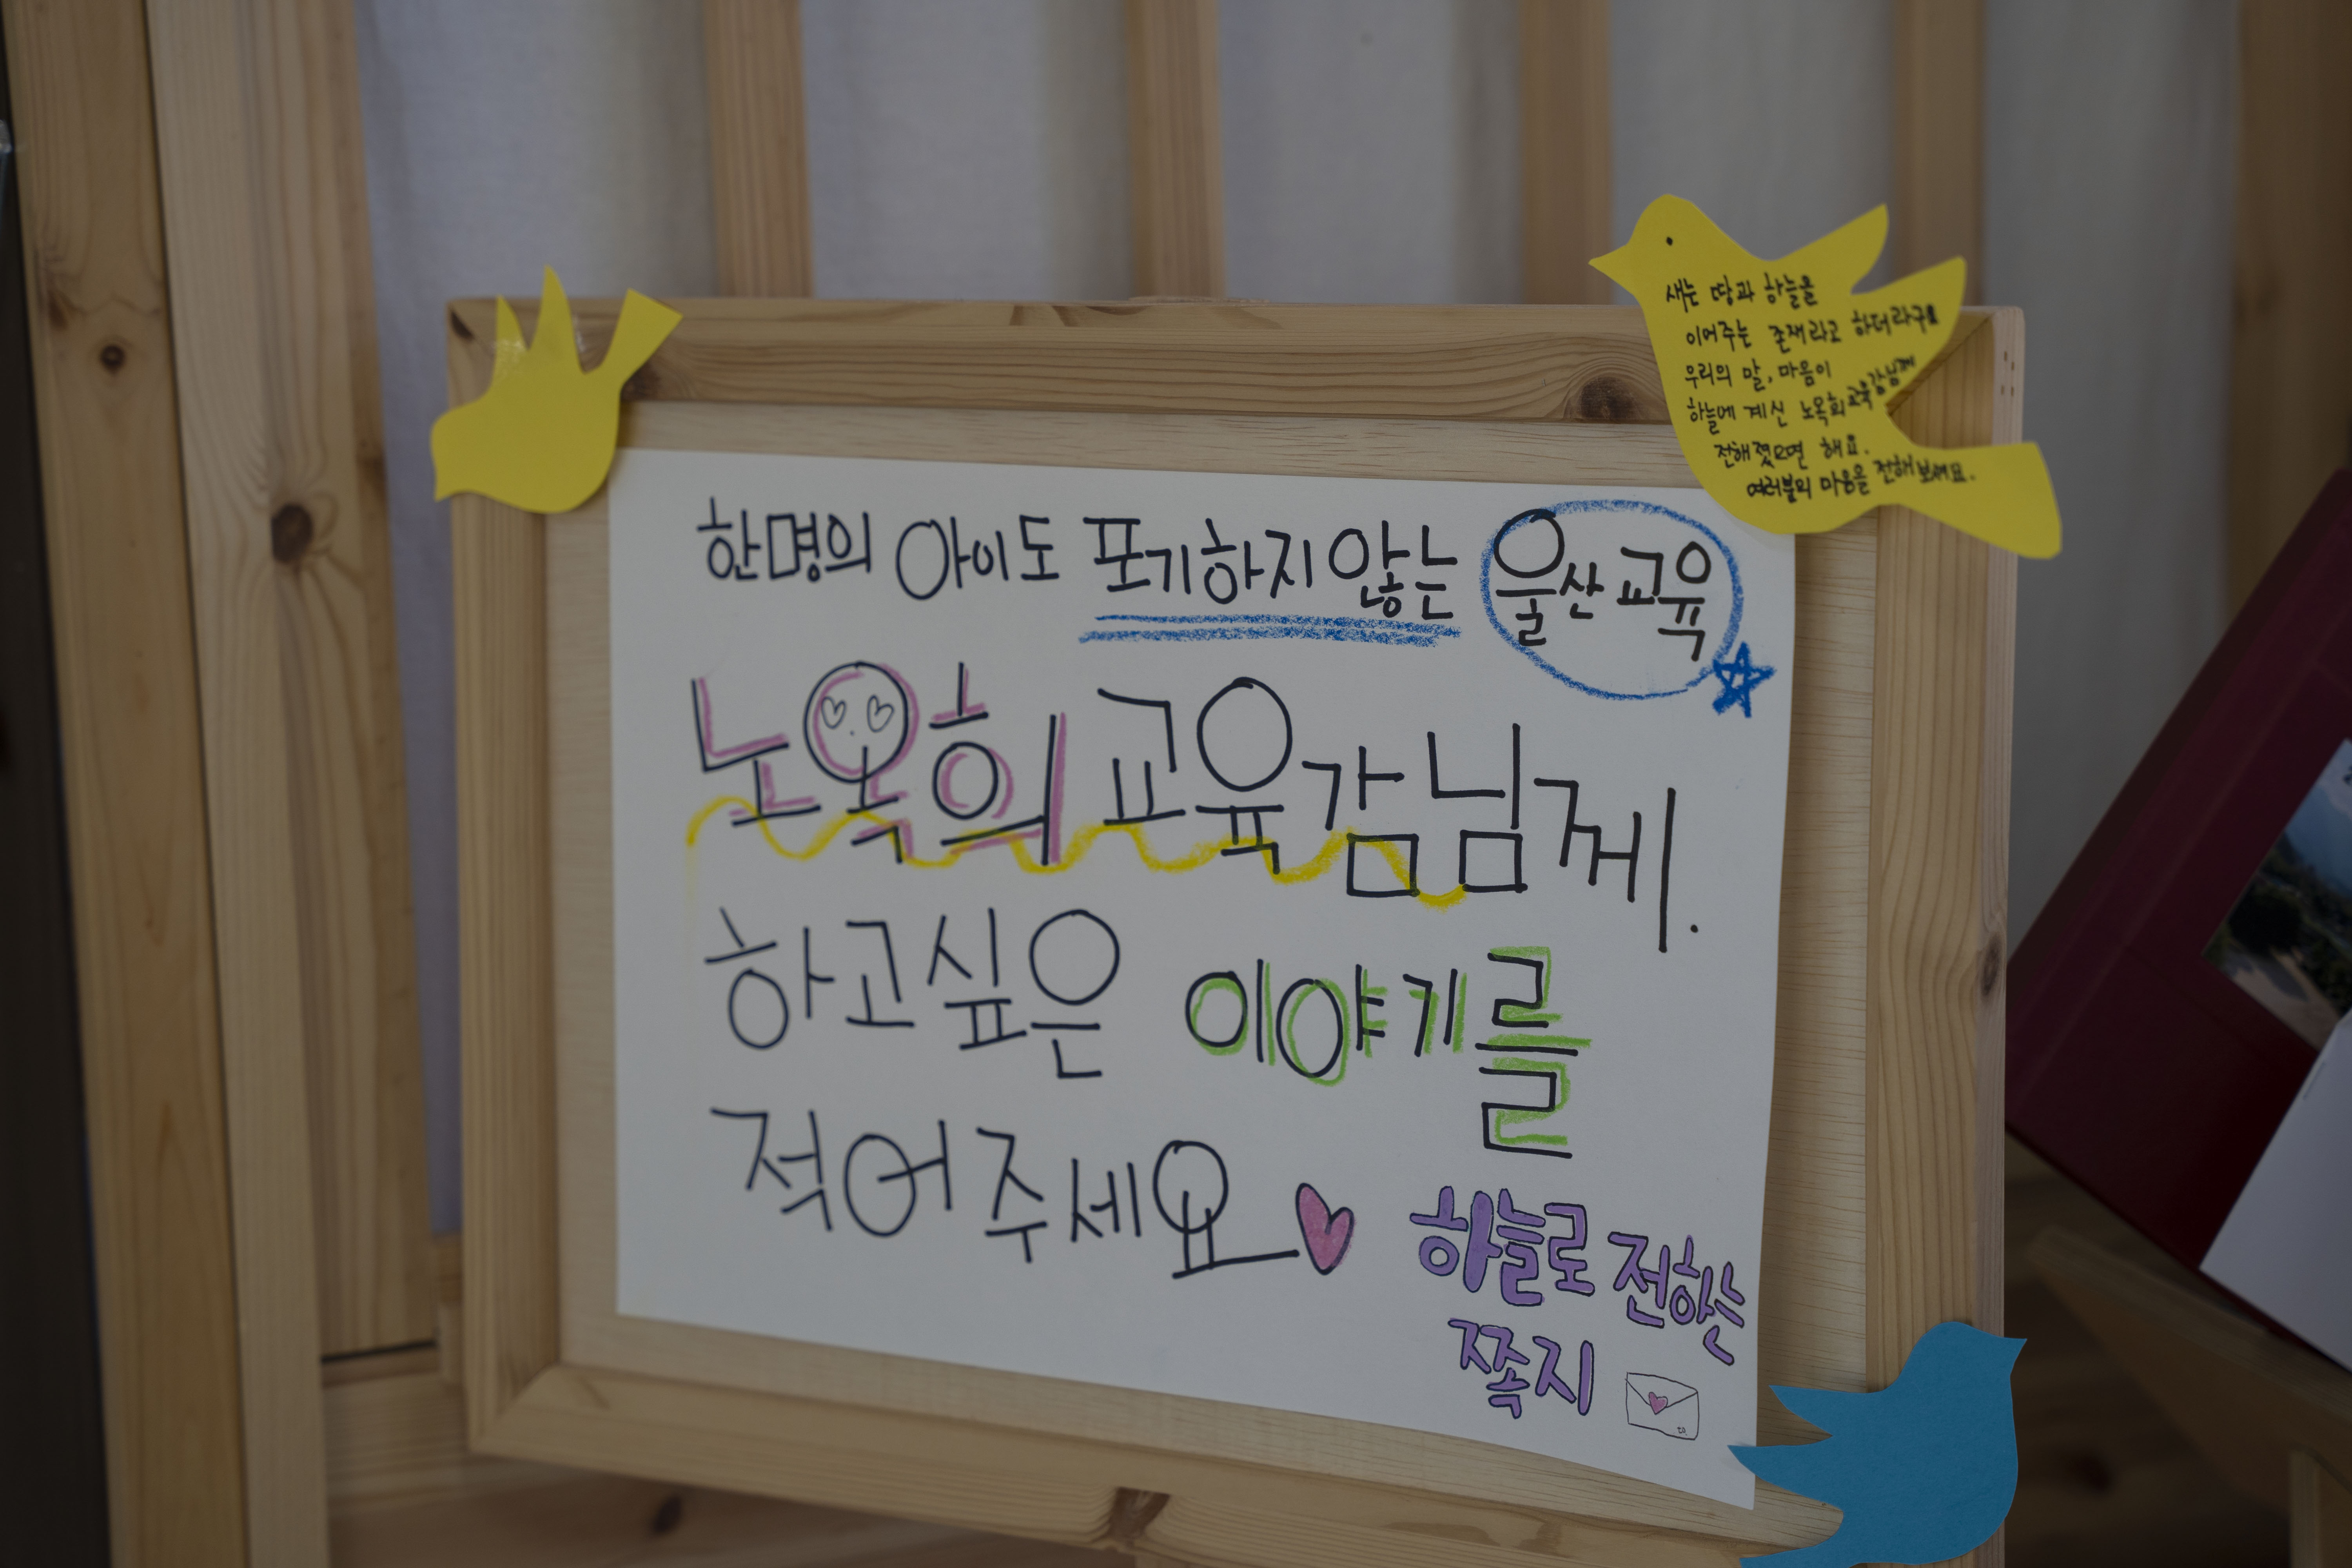 새는 땅과 하늘을
이어주는 존재라고 하더라구요
우리의 말, 마음이
하늘에 계신 노옥희 교육감님께
전해졌으면 해요.
여러분의 마음을 전해보세요.
한명의 아이도 포기하지 않는 울산교육
노옥희 교육감님께.
하고싶은 이야기를
적어주세요
하늘로 전하는
쪽지